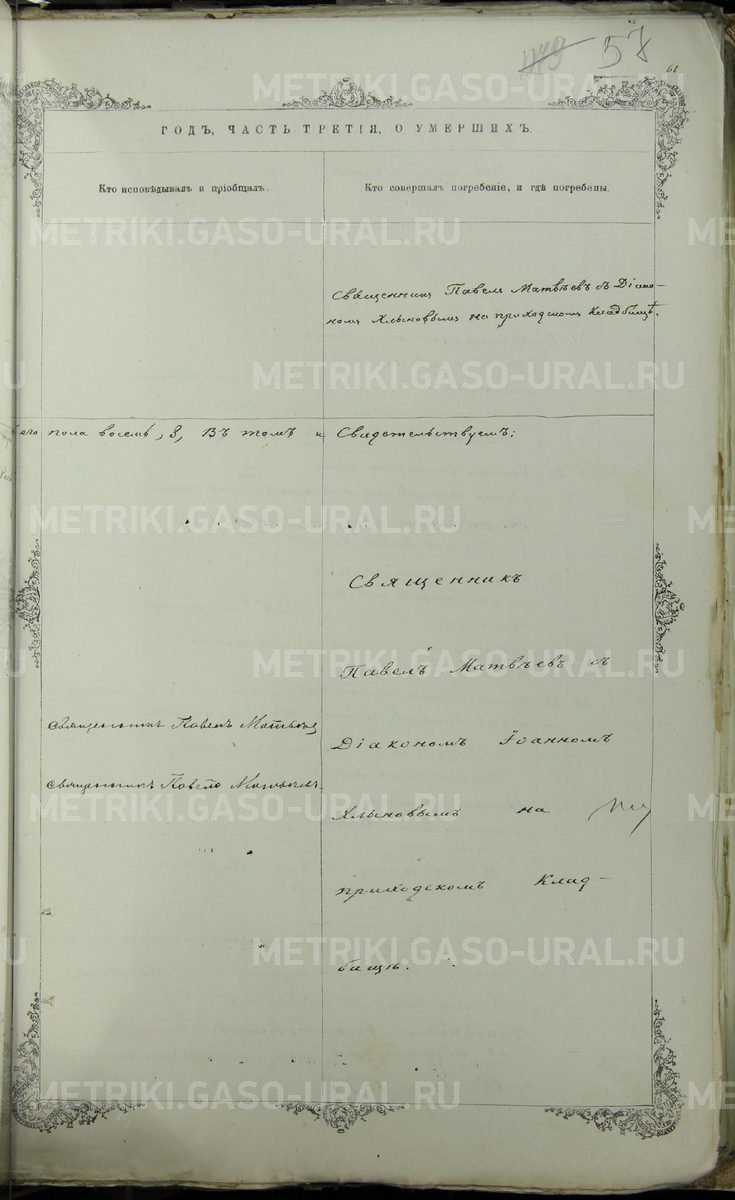 149 57
61
ГОДЪ, ЧАСТЬ ТРЕТІЯ, О УМЕРШИХЪ.
Кто исповѣдывалъ и пріобщалъ.
Кто совершалъ погребеніе, и гдѣ погребены.
Священникъ Павелъ Матвѣевъ съ Діако-
номъ Хлыновымъ на приходскомъ кладбищѣ.
его пола восемь, 8, Въ томъ и Свидетельствуемъ:
Священникъ
Павелъ Матвѣевъ съ
Священникъ Павелъ Матвѣевъ
Діакономъ Іоанномъ
Священникъ Павелъ Матвѣевъ.
Хлыновымъ на
приходскомъ Клад-
бищѣ.
METRIKI.GASO-URAL.RU